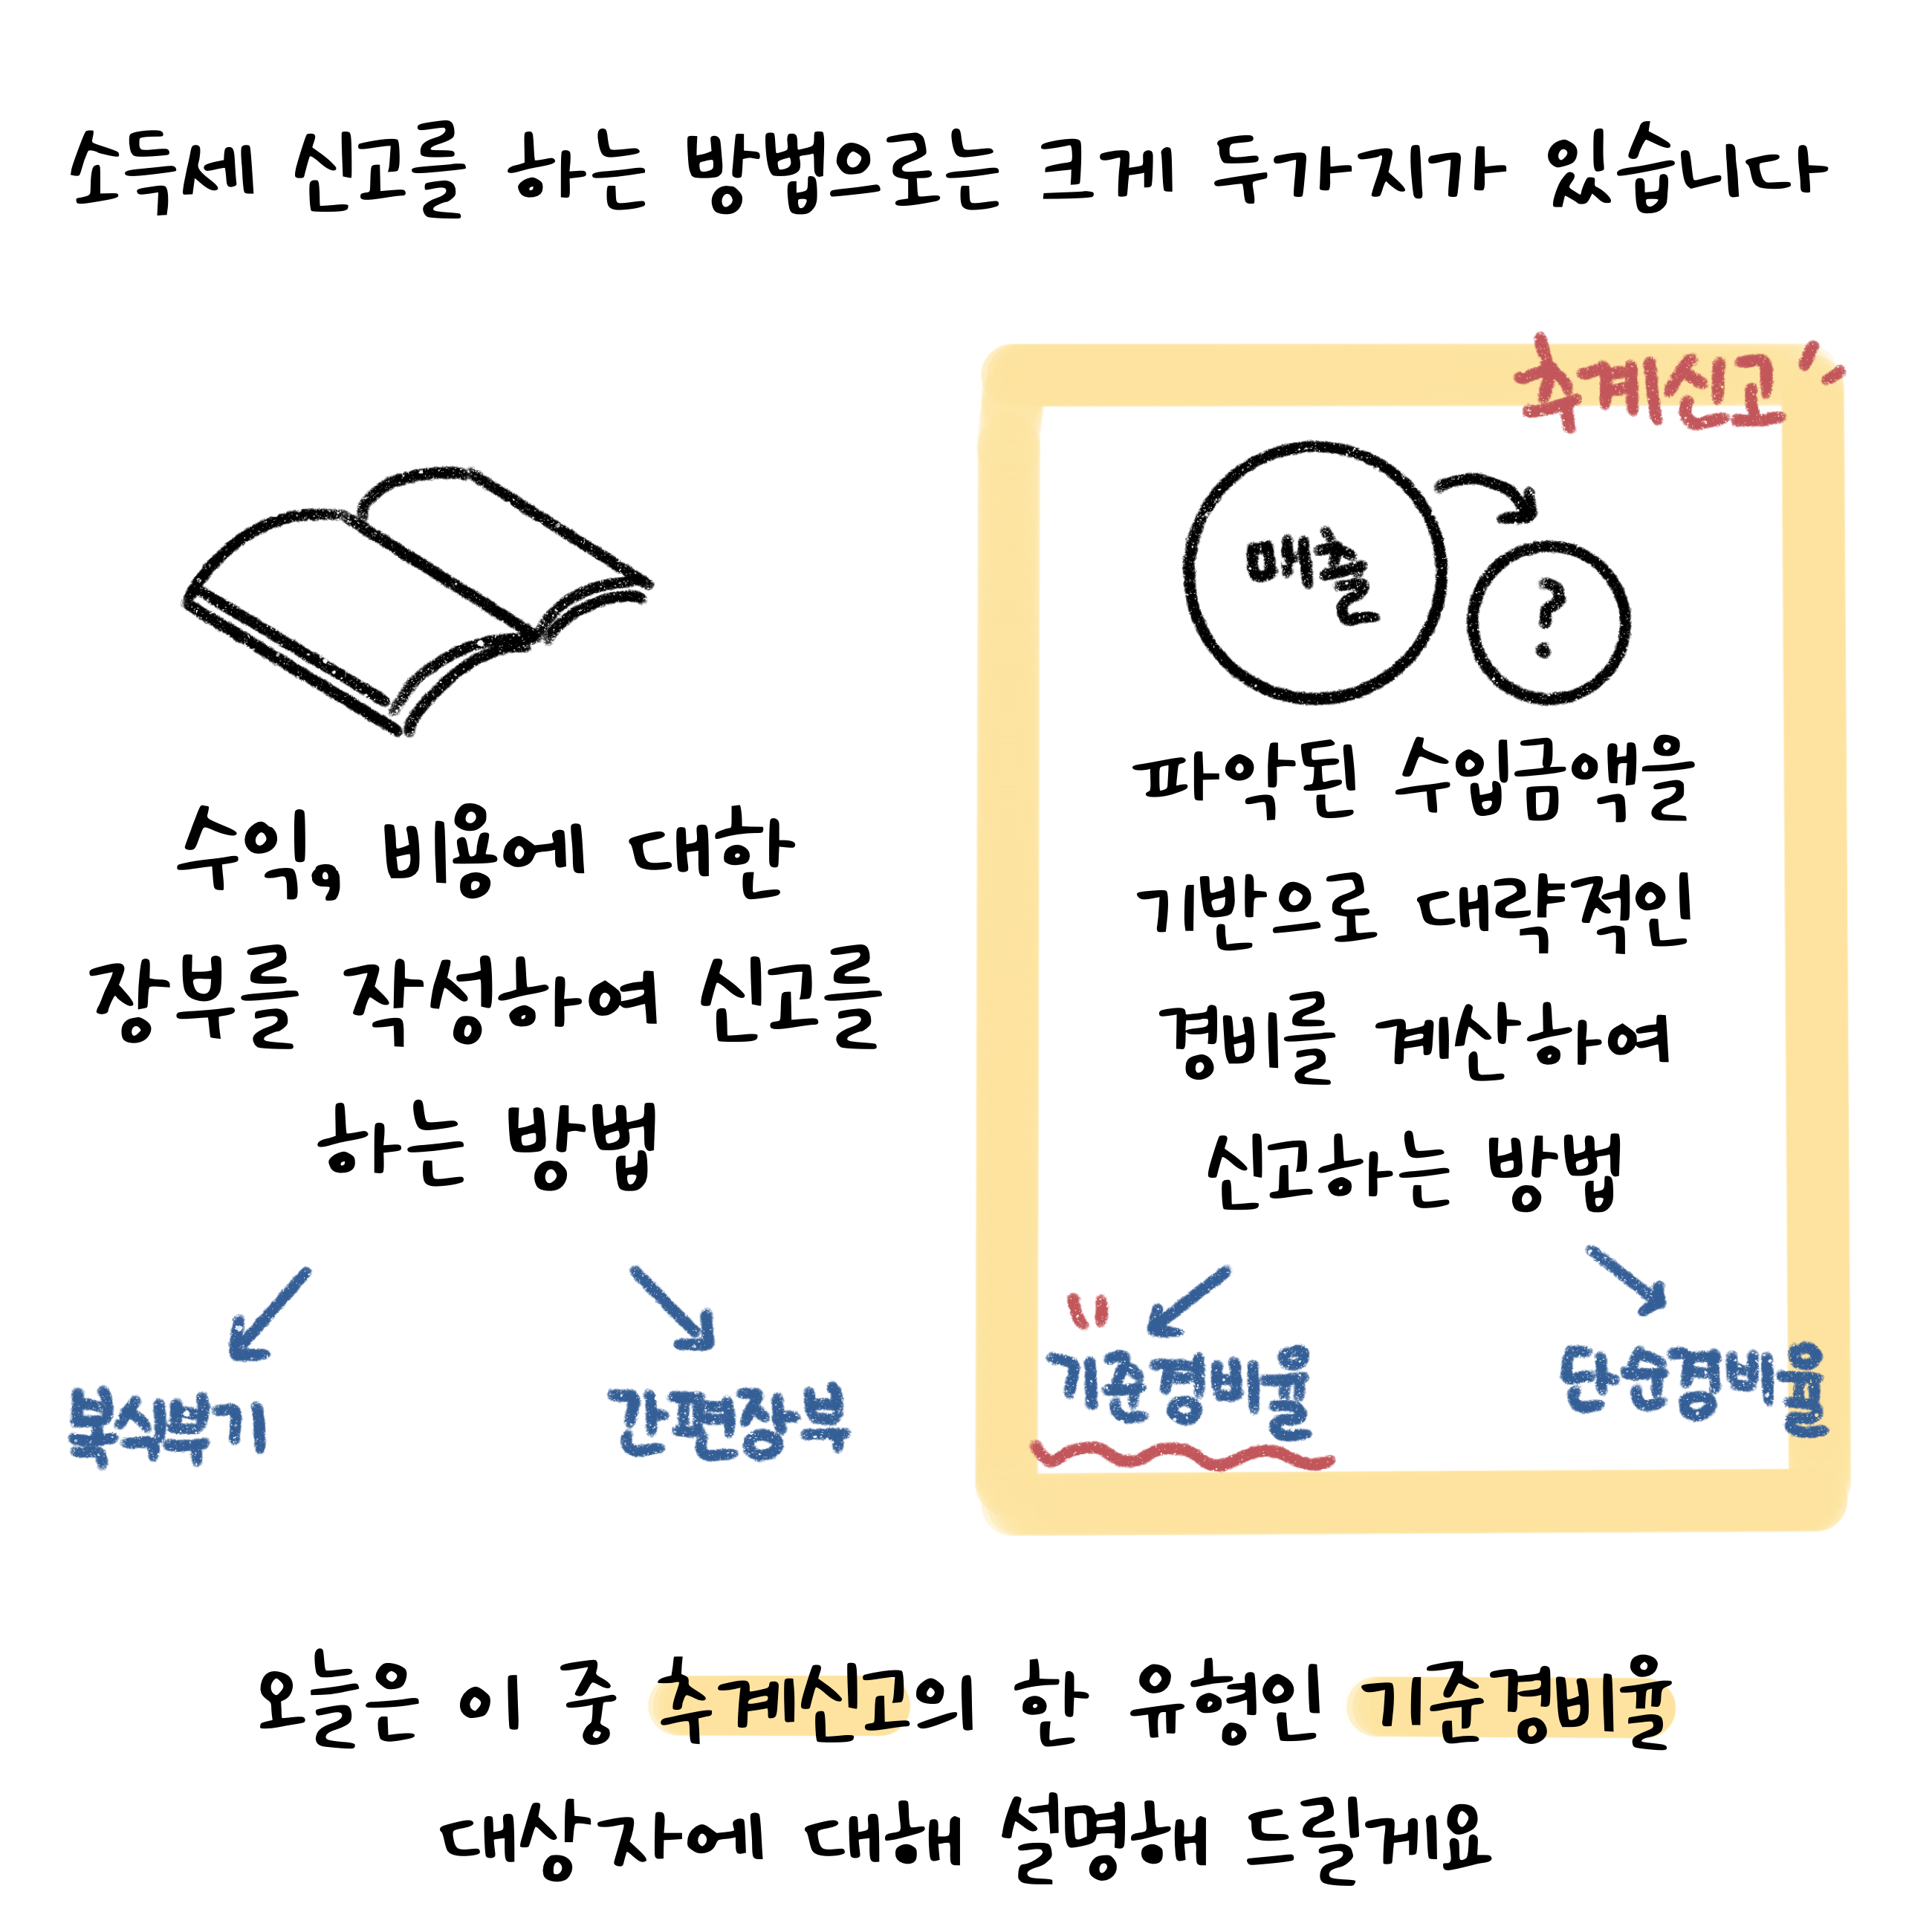 소득세 신고를 하는 방법으로는 크게 두가지가 있습니다
수익, 비용에 대한
장부를 작성하여 신고를
하는 방법
복식부기
간편장부
추계신고
매출
?
파악된 수입금액을
기반으로 대략적인
경비를 계산하여
신고하는 방법
기준경비율
단순경비율
오늘은 이 중 추계신고의 한 유형인 기준경비율
대상자에 대해 설명해 드릴게요